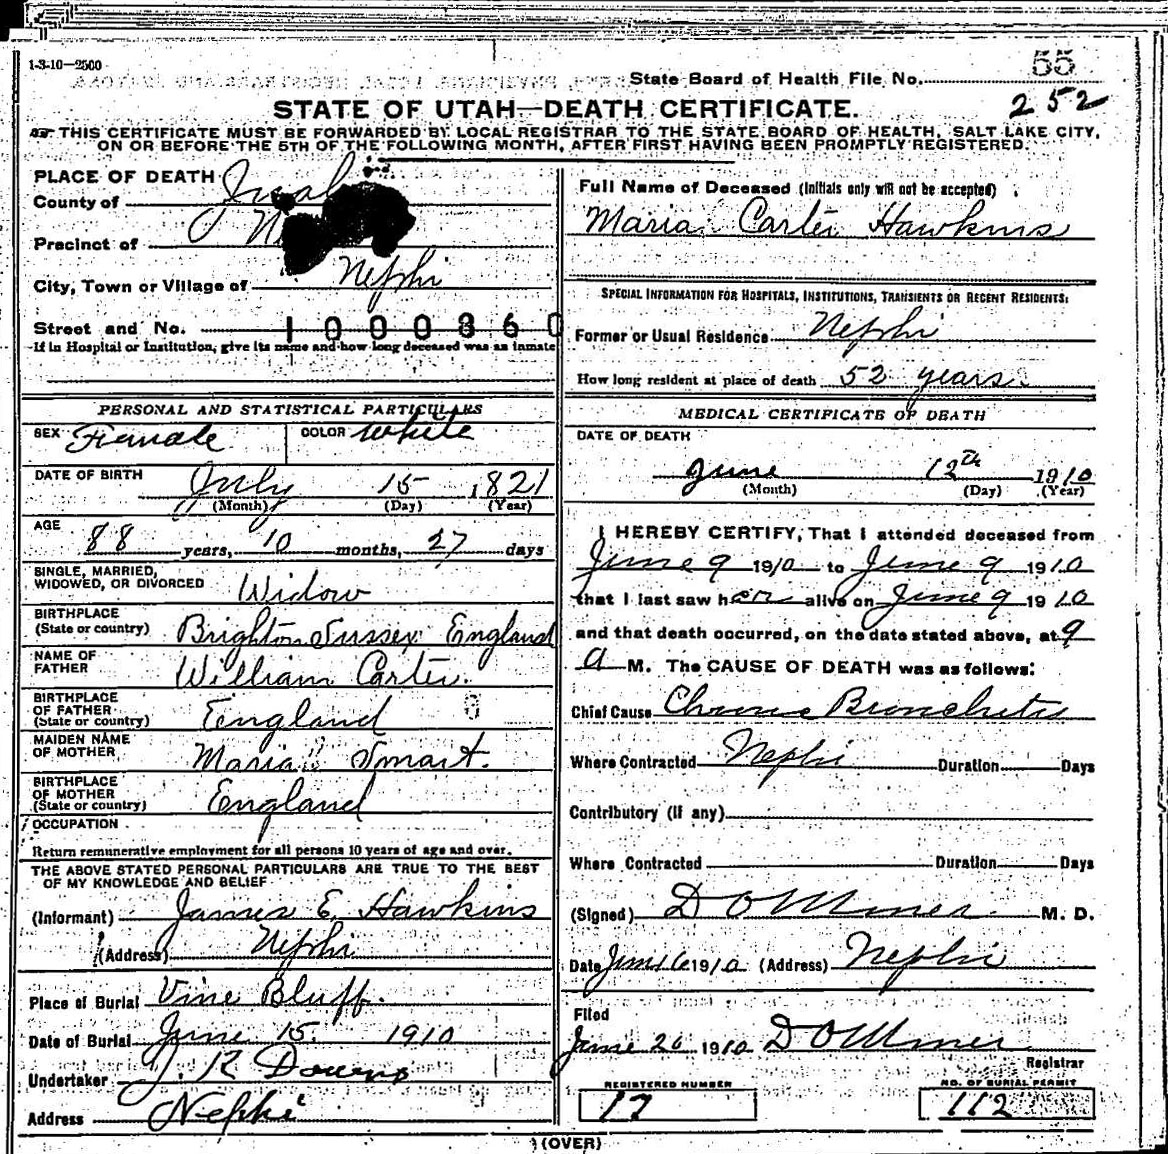 1-3-10—2500
55
State Board of Health File No.
252
STATE OF UTAH—DEATH CERTIFICATE.
THIS CERTIFICATE MUST BE FORWARDED BY LOCAL REGISTRAR TO THE STATE BOARD OF HEALTH, SALT LAKE CITY,
ON OR BEFORE THE 5TH OF THE FOLLOWING MONTH, AFTER FIRST HAVING BEEN PROMPTLY REGISTERED.
PLACE OF DEATH
County of Juab
Precinct of
City, Town or Village of Nephi
Street and No. 1000860
If in Hospital or Institution, give its name and how long deceased was an inmate
PERSONAL AND STATISTICAL PARTICULARS
SEX Female COLOR White
DATE OF BIRTH July 15 1821
(Month) (Day) (Year)
AGE
88 years, 10 months, 27 days
SINGLE, MARRIED,
WIDOWED, OR DIVORCED Widow
BIRTHPLACE
(State or country) Brighton Sussex England
NAME OF
FATHER William Carter.
BIRTHPLACE
OF FATHER
(State or country) England
MAIDEN NAME
OF MOTHER Maria Smart.
BIRTHPLACE
OF MOTHER
(State or country) England
OCCUPATION
Return remunerative employment for all persons 10 years of age and over.
THE ABOVE STATED PERSONAL PARTICULARS ARE TRUE TO THE BEST
OF MY KNOWLEDGE AND BELIEF
(Informant) James E. Hawkins
(Address) Nephi
Place of Burial Vine Bluff.
Date of Burial June 15. 1910
Undertaker J. K Downs
Address Nephi
Full Name of Deceased (Initials only will not be accepted)
Maria Carter Hawkins
SPECIAL INFORMATION FOR HOSPITALS, INSTITUTIONS, TRANSIENTS OR RECENT RESIDENTS:
Former or Usual Residence Nephi
How long resident at place of death 52 years
MEDICAL CERTIFICATE OF DEATH
DATE OF DEATH
June 12th 1910
(Month) (Day) (Year)
I HEREBY CERTIFY, That I attended deceased from
June 9 1910 to June 9 1910
that I last saw her alive on June 9 1910
and that death occurred, on the date stated above, at 9
a M. The CAUSE OF DEATH was as follows:
Chief Cause Chronic Bronchitis
Where Contracted Nephi Duration Days
Contributory (if any)
Where Contracted Duration Days
(Signed) D O Miner M. D.
Date 1910 (Address) Nephi
Filed
June 20 1910 D O Miner
Registrar
REGISTERED NUMBER
17
NO. OF BURIAL PERMIT
112
(OVER)